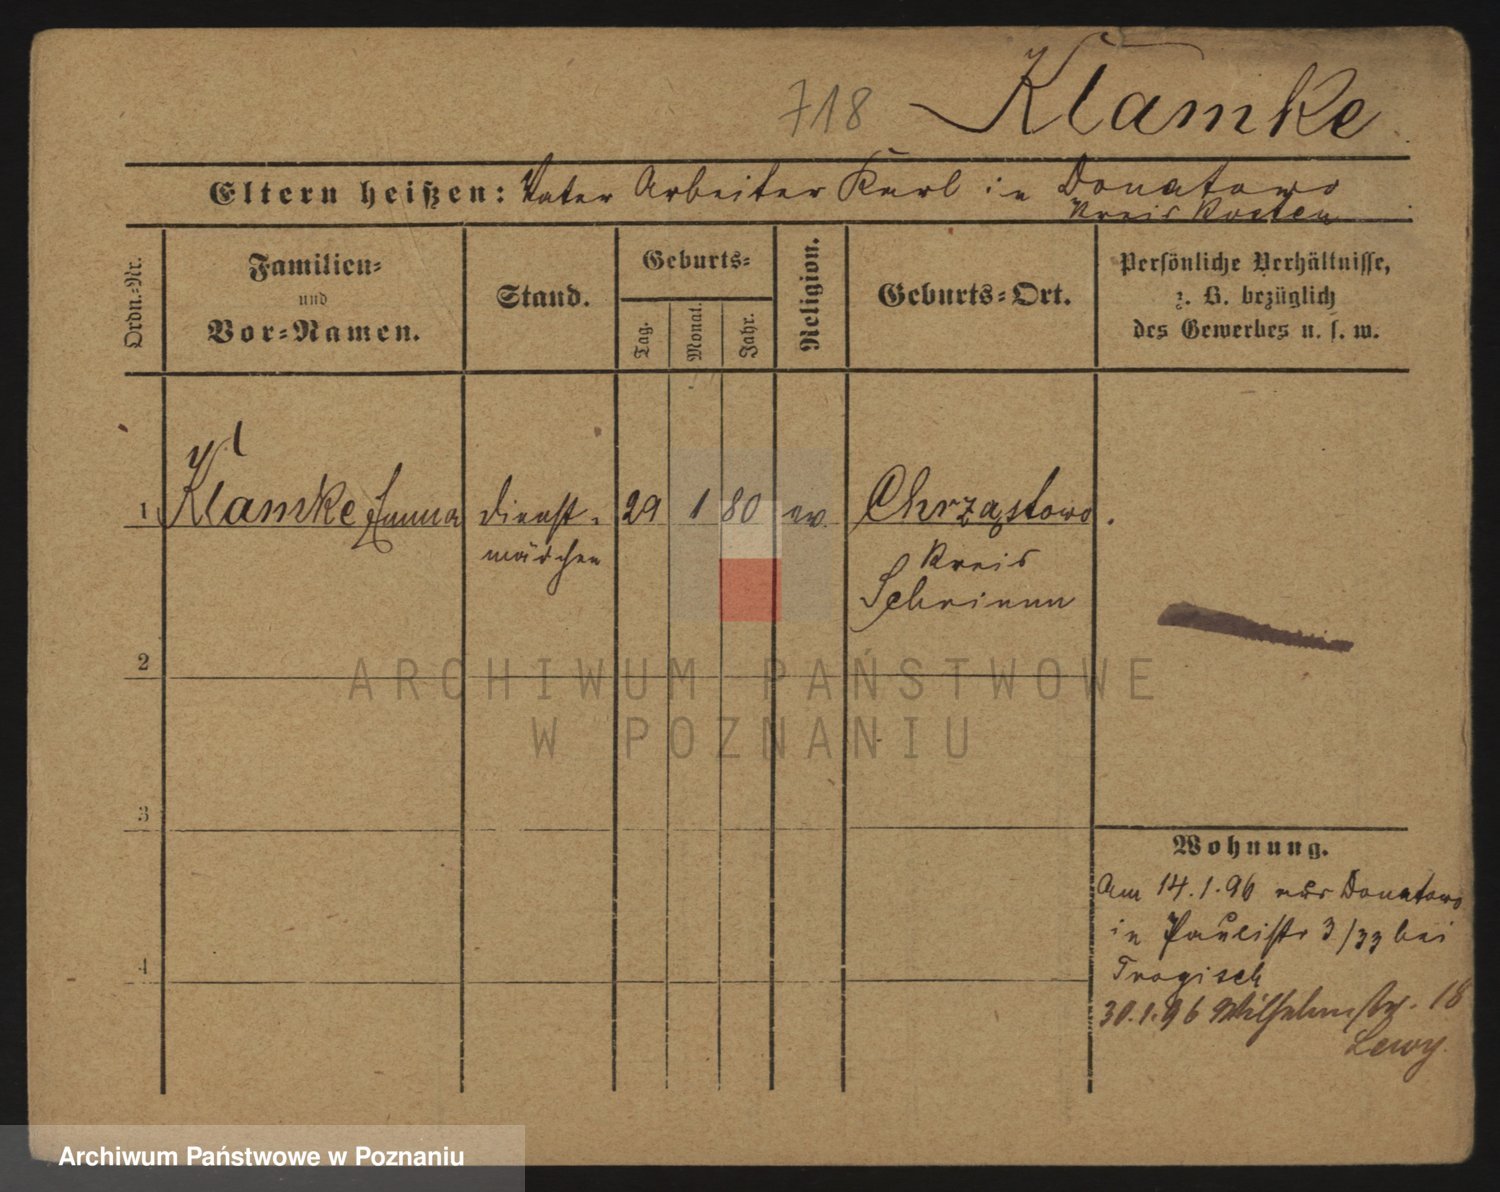 718 Klamke
Eltern heißen: Vater Arbeiter Karl in Donatowo
Kreis Kosten
Ordn.-Nr.
Familien-
und
Vor-Namen.
Stand.
Geburts-
Tag.
Monat.
Jahr.
Religion.
Geburts-Ort.
Persönliche Verhältnisse,
z. B. bezüglich
des Gewerbes u. s. w.
1 Klamke Emma Dienst- 29 1 80 ev Chrząstowo
mädchen Kreis
Schrimm
2
ARCHIWUM PAŃSTWOWE
W POZNANIU
3
Wohnung.
Am 14.1.96 aus Donatowo
in Paulistr 3/33 bei
Tragisch
4
30.1.96 Wilhelmstr. 18
Lewy.
Archiwum Państwowe w Poznaniu